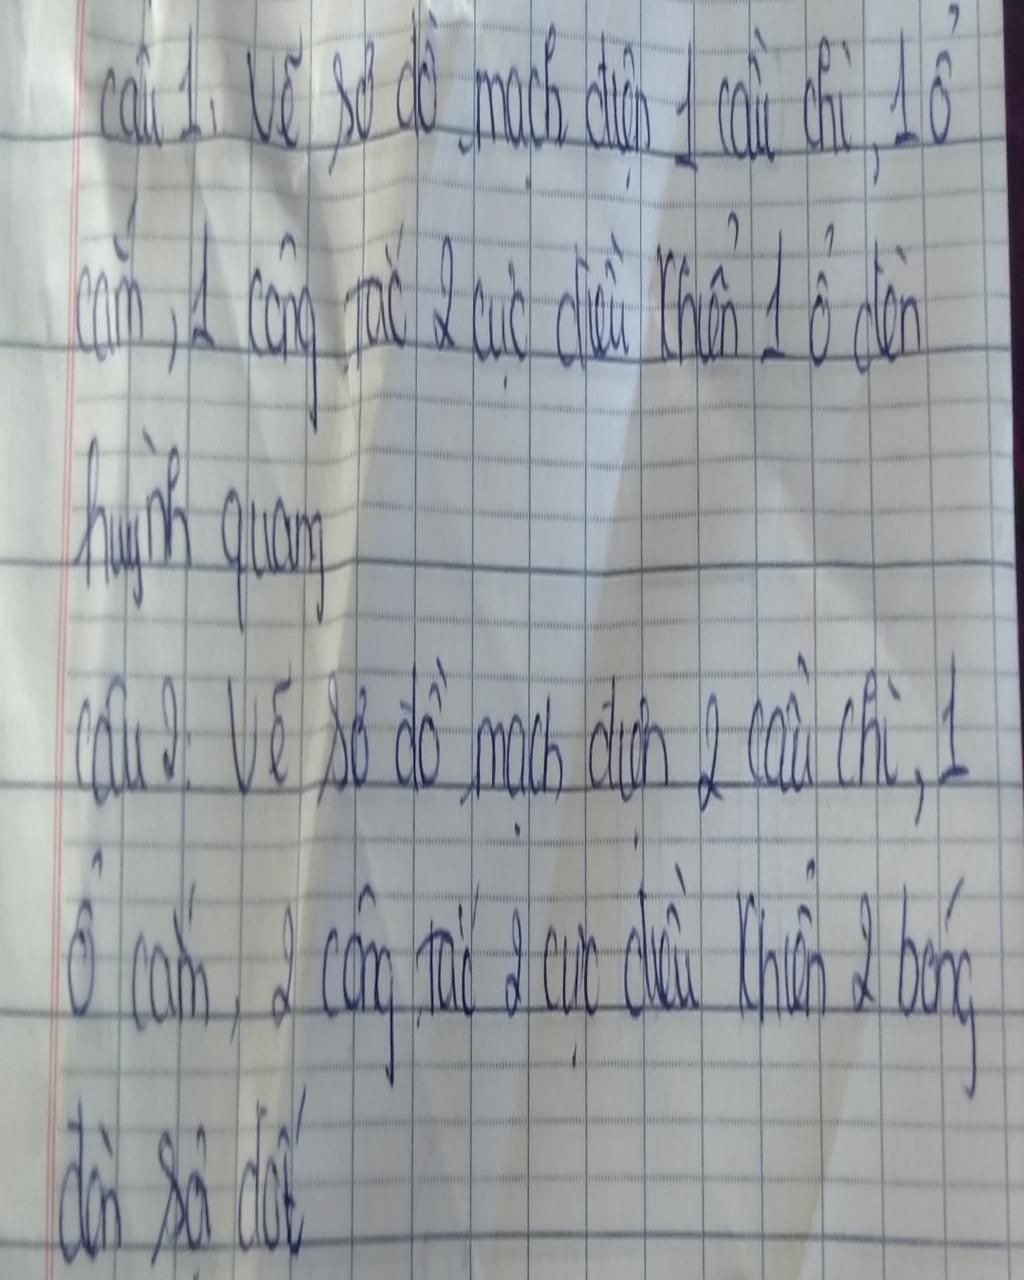 câu 1. Vẽ sơ đồ mạch điện 1 cầu chì, 1 ổ
cắm, 1 công tắc 2 cực điều khiển 1 ổ đèn
huỳnh quang
câu 2: Vẽ sơ đồ mạch điện 2 cầu chì, 1
ổ cắm, 2 công tắc 2 cực điều khiển 2 bóng
đèn sợi đốt